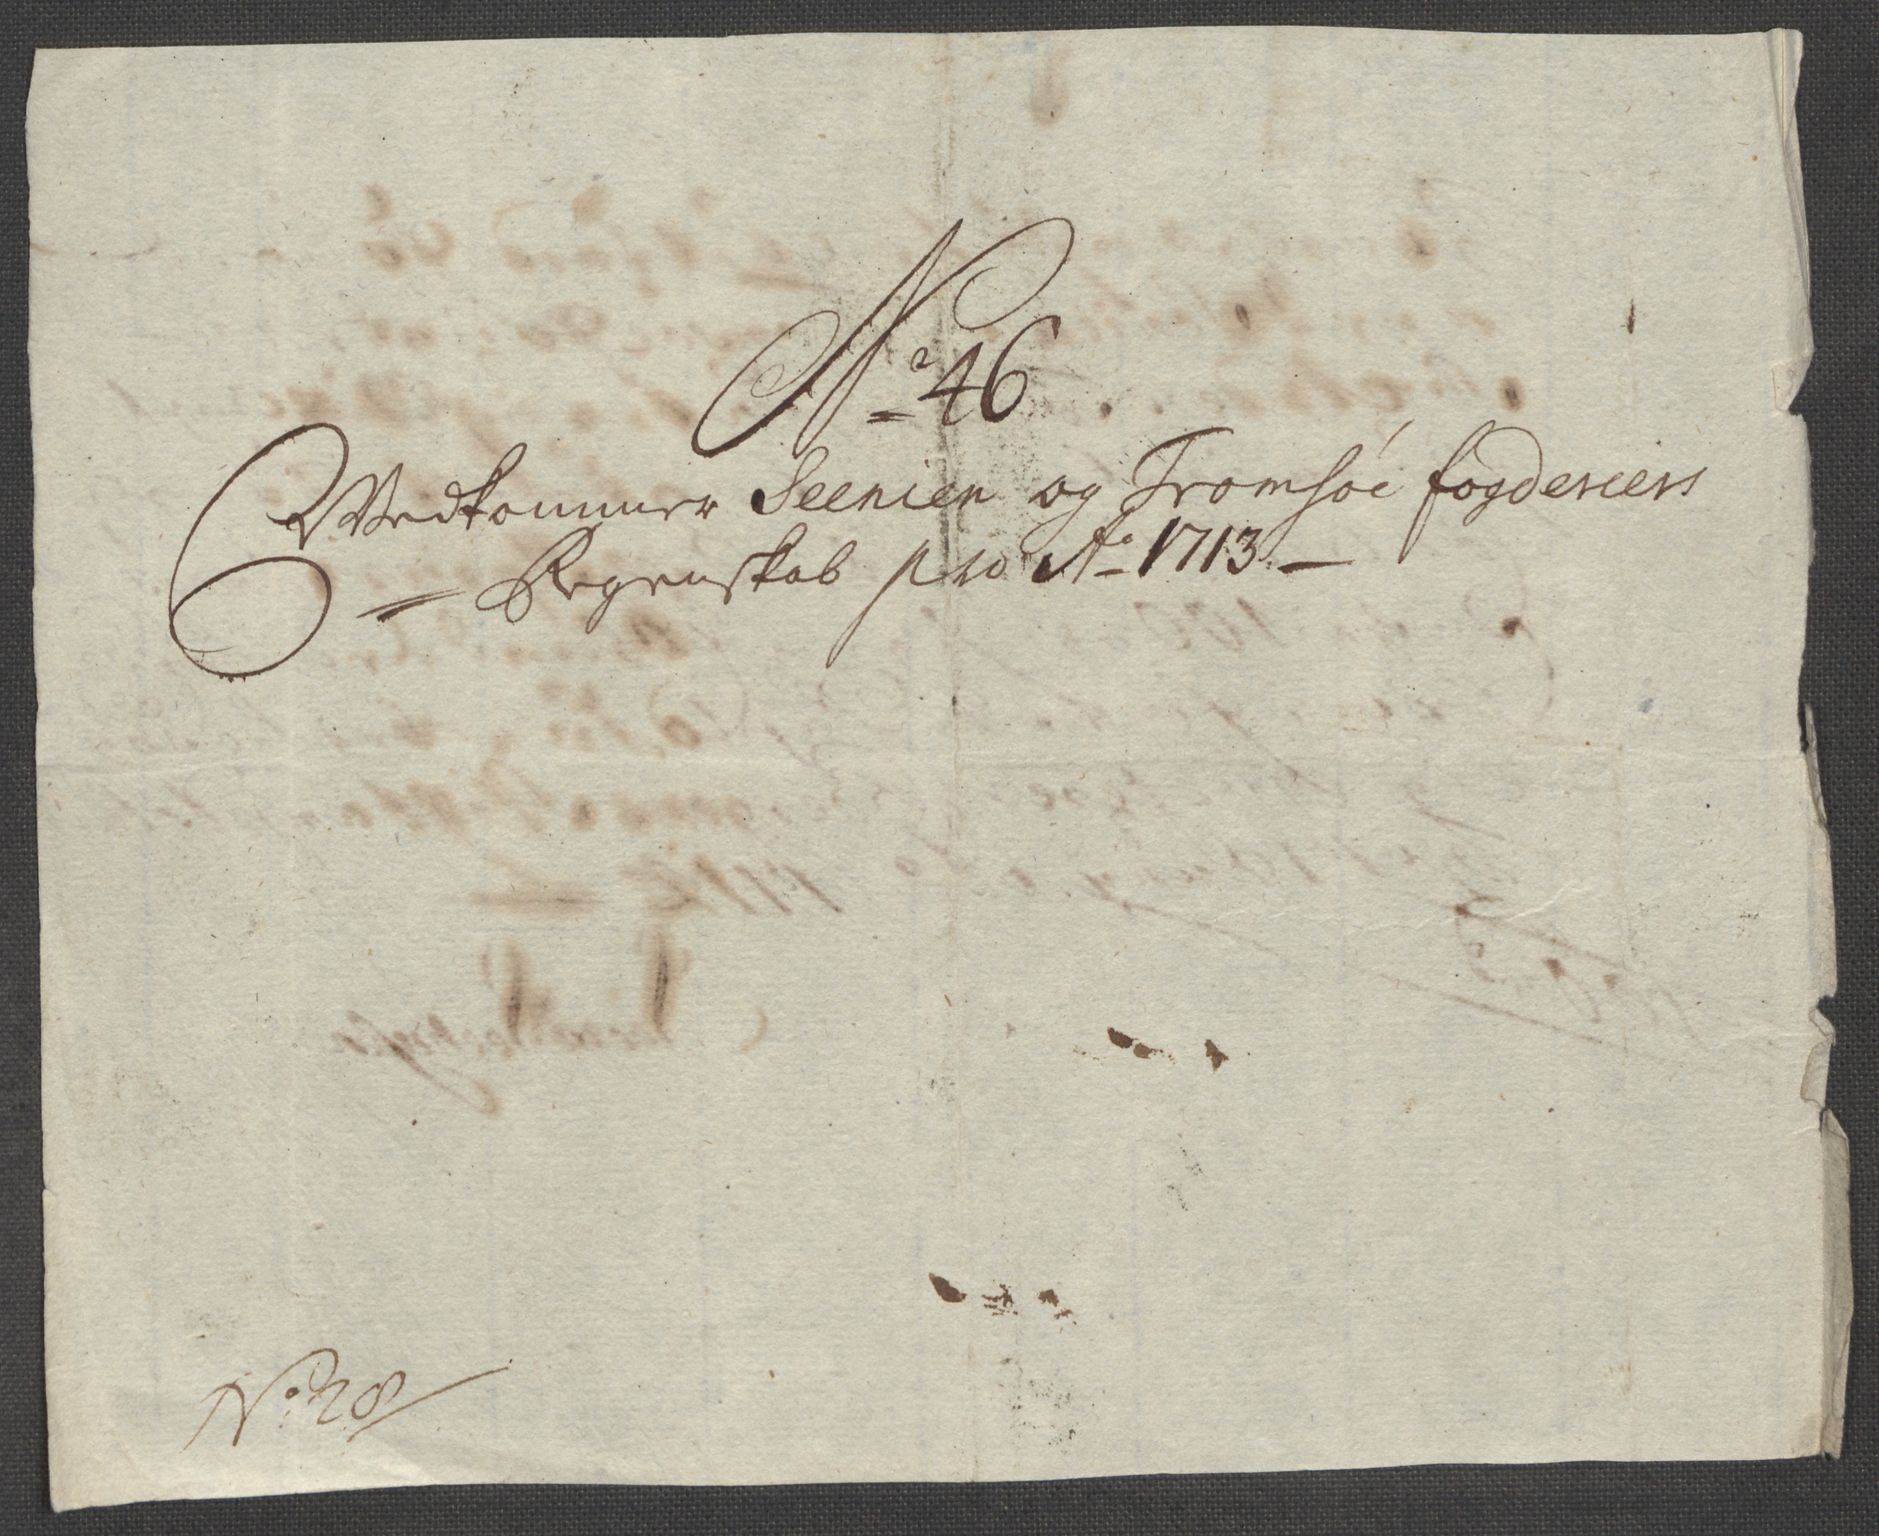 No 46
Vedkommer Seenien og Tromsöe fogderiers
Regenskab pro Ao 1713
No: 28